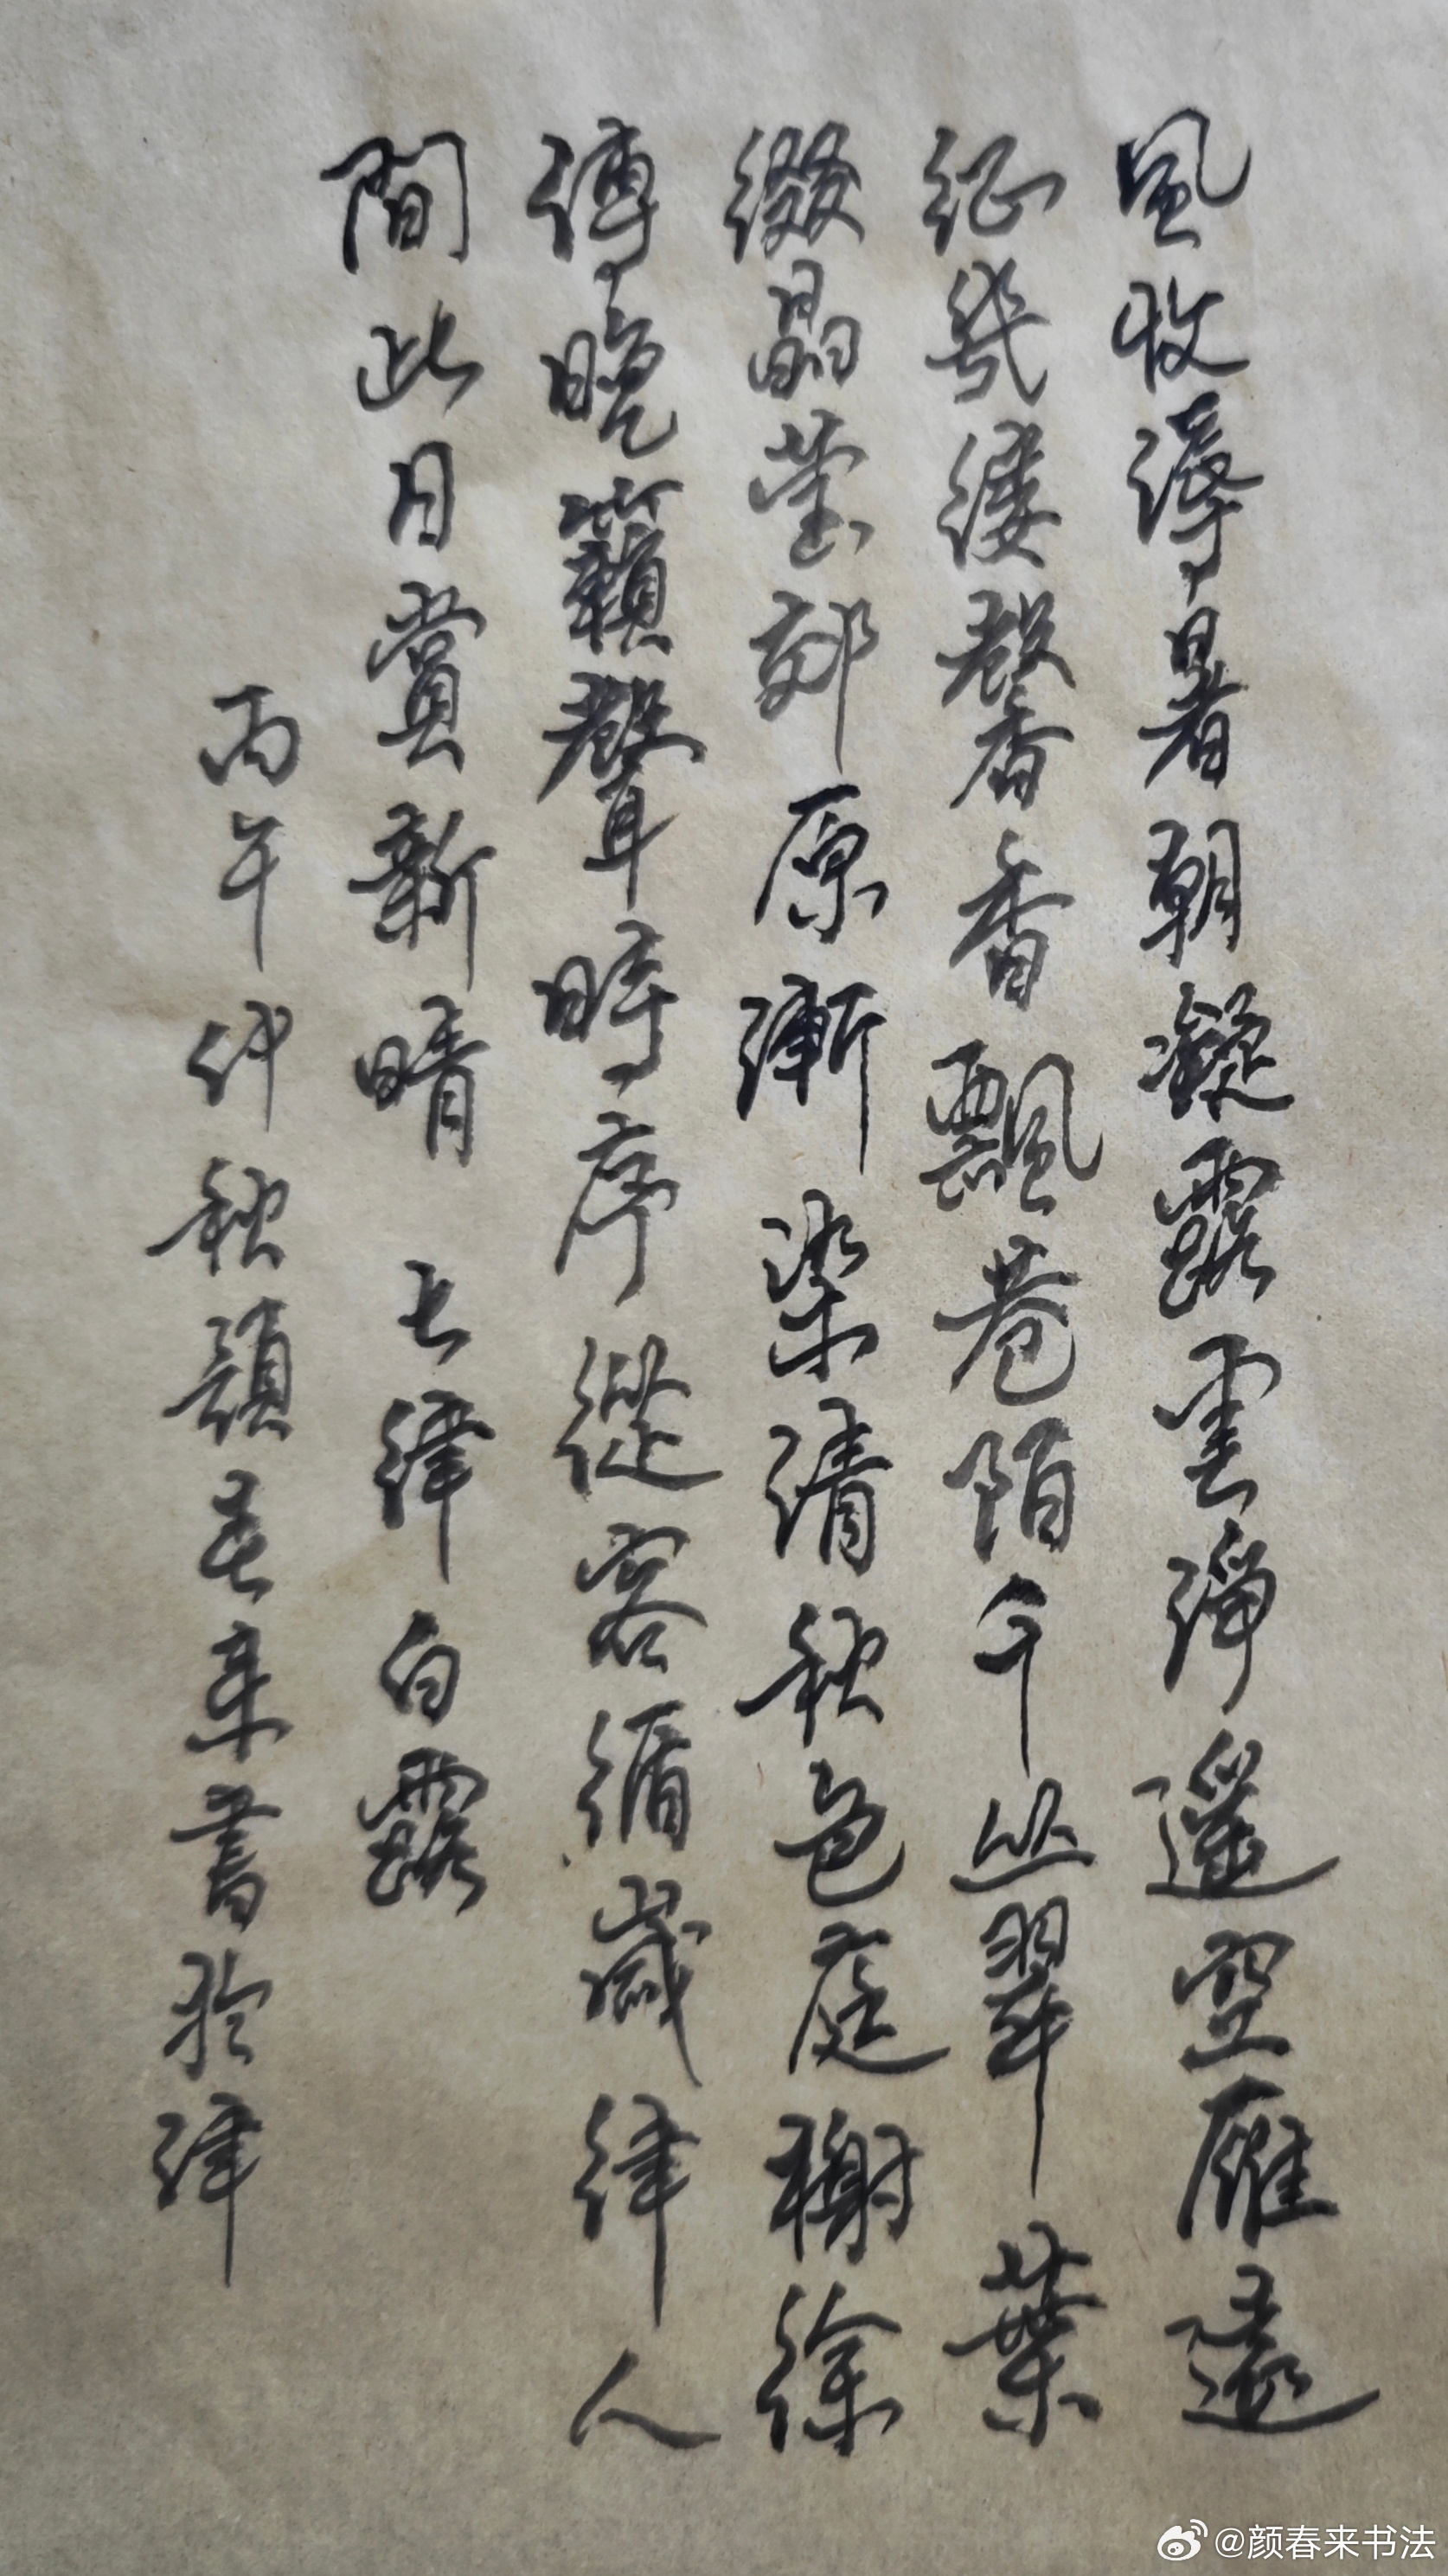 風收溽暑朝凝露雲淨遥空雁遠
征幾縷馨香飄巷陌千丛翠葉
綴晶莹郊原漸染清秋色庭榭徐
傳晚籟聲時序從容循歲律人
間此日賞新晴 七律白露
丙午仲秋顔春来書於津
@颜春来书法